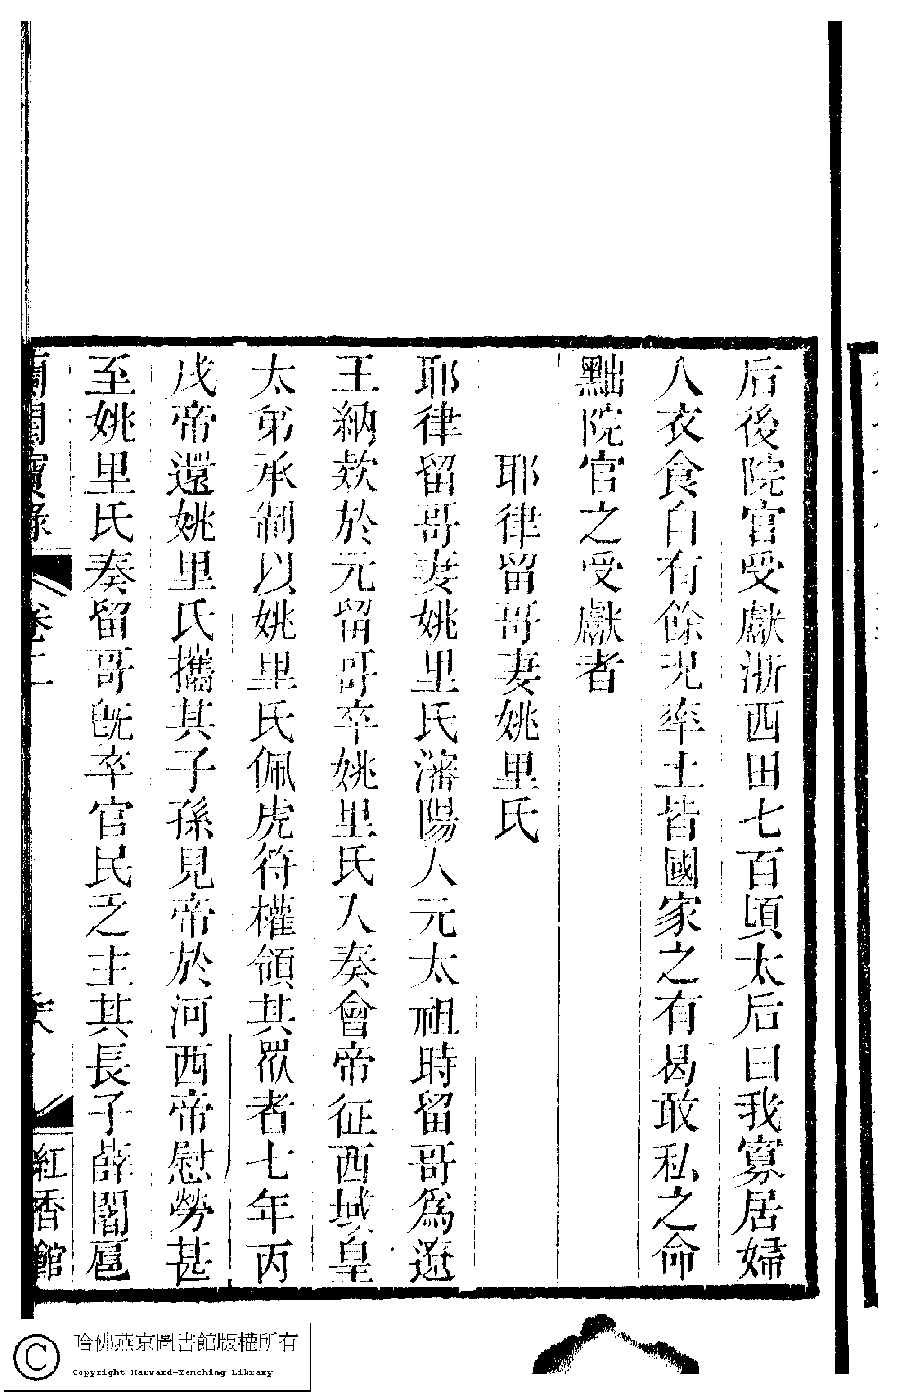 后後院官受獻浙西田七百頃太后曰我寡居婦
人衣食自有餘况率土皆國家之有曷敢私之命
黜院官之受獻者
耶律留哥妻姚里氏
耶律留哥妻姚里氏瀋陽人元太祖時留哥爲遼
王納欵於元留哥卒姚里氏入奏會帝征西域皇
太弟承制以姚里氏佩虎符權領其衆者七年丙
戌帝還姚里氏攜其子孫見帝於河西帝慰勞甚
至姚里氏奏留哥旣卒官民乏主其長子薛闍扈
蘭閨寶錄
卷二
紅香館
哈佛燕京圖書館版權所有
Copyright Harvard-Yenching Library